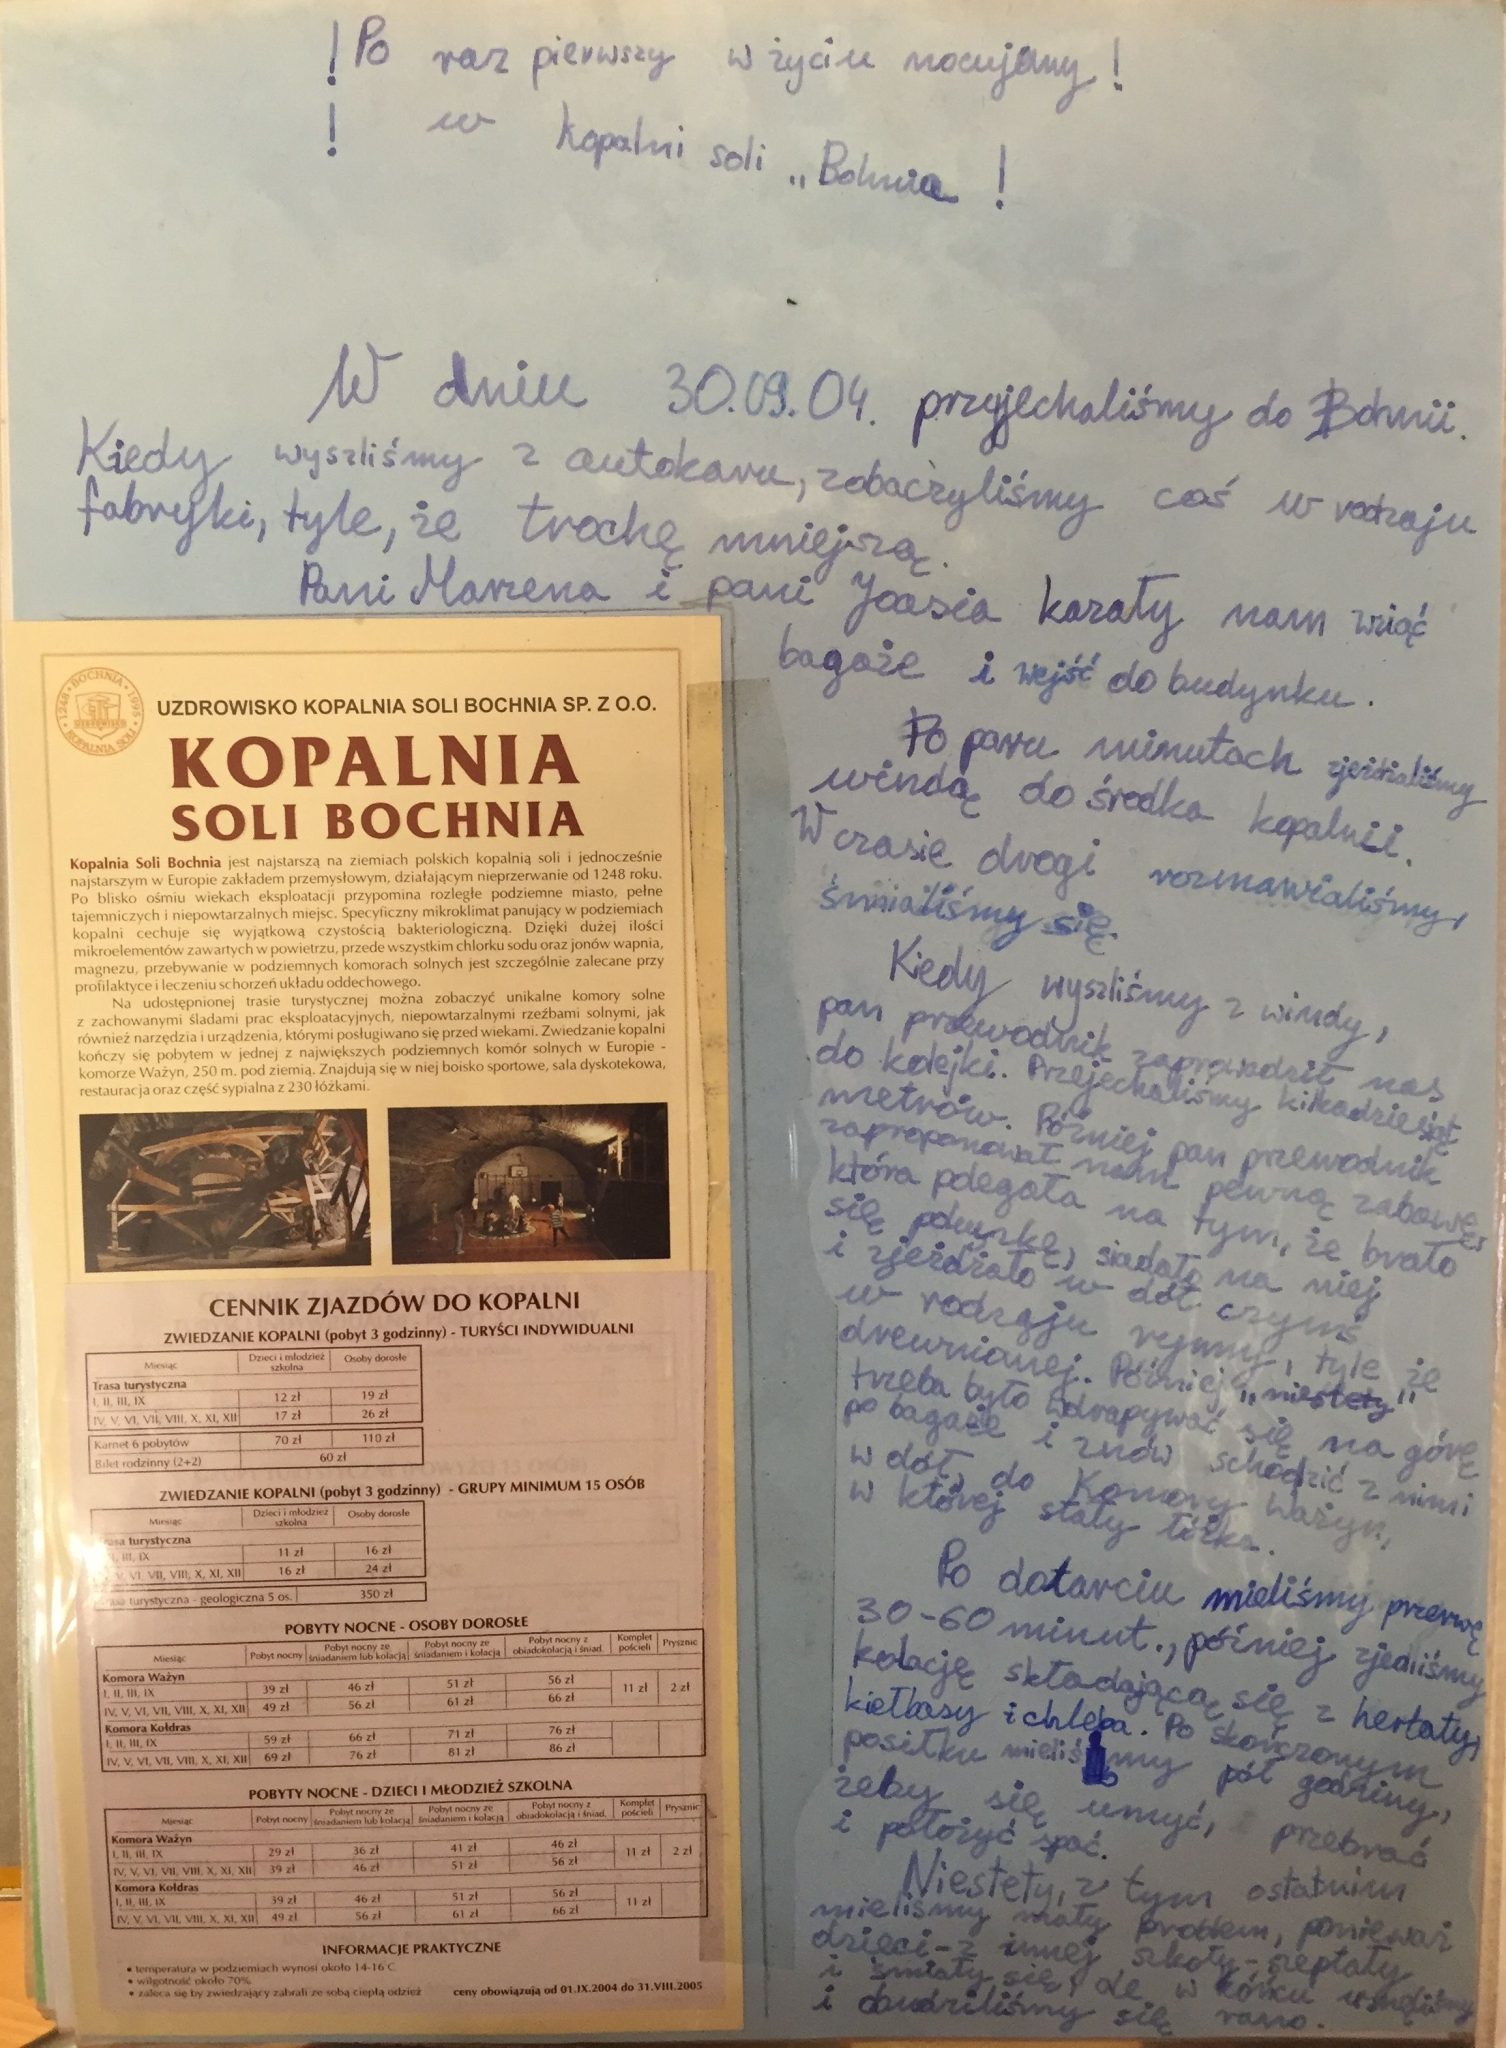 ! Po raz pierwszy w życiu nocujemy !
! w kopalni soli „Bohnia !
W dniu 30.09.04. przyjechaliśmy do Bohnii.
Kiedy wyszliśmy z autokaru, zobaczyliśmy coś w rodzaju
fabryki, tyle, że trochę mniejszą.
Pani Marzena i pani Joasia kazały nam wziąć
bagaże i wejść do budynku.
Po paru minutach zjeżdzaliśmy
windą do środka kopalnii.
W czasie drogi rozmawialiśmy,
śmialiśmy się.
Kiedy wyszliśmy z windy,
pan przewodnik zaprowadził nas
do kolejki. Przejechaliśmy kilkadziesiąt
metrów. Później pan przewodnik
zaproponował nam pewną zabawę,
która polegała na tym, że brało
się poduszkę, siadało na niej
i zjeżdżało w dół czymś
w rodzaju rynny, tyle że
drewnianej. Później „niestety"
trzeba było wdrapywać się na górę
po bagaże i znów schodzić z nimi
w dół, do Komory Ważyn,
w której stały łóżka.
Po dotarciu mieliśmy przerwę
30-60 minut., później zjedliśmy
kolację składającą się z herbaty,
kiełbasy i chleba. Po skończonym
posiłku mieliśmy pół godziny,
żeby się umyć, przebrać
i położyć spać.
Niestety, z tym ostatnim
mieliśmy mały problem, ponieważ
dzieci-z innej szkoły-szeptały
i śmiały się, ale w końcu usnęliśmy
i obudziliśmy się rano.
BOCHNIA
1248 1995
UZDROWISKO
KOPALNIA SOLI
UZDROWISKO KOPALNIA SOLI BOCHNIA SP. Z O.O.
KOPALNIA
SOLI BOCHNIA
Kopalnia Soli Bochnia jest najstarszą na ziemiach polskich kopalnią soli i jednocześnie
najstarszym w Europie zakładem przemysłowym, działającym nieprzerwanie od 1248 roku.
Po blisko ośmiu wiekach eksploatacji przypomina rozległe podziemne miasto, pełne
tajemniczych i niepowtarzalnych miejsc. Specyficzny mikroklimat panujący w podziemiach
kopalni cechuje się wyjątkową czystością bakteriologiczną. Dzięki dużej ilości
mikroelementów zawartych w powietrzu, przede wszystkim chlorku sodu oraz jonów wapnia,
magnezu, przebywanie w podziemnych komorach solnych jest szczególnie zalecane przy
profilaktyce i leczeniu schorzeń układu oddechowego.
Na udostępnionej trasie turystycznej można zobaczyć unikalne komory solne
z zachowanymi śladami prac eksploatacyjnych, niepowtarzalnymi rzeźbami solnymi, jak
również narzędzia i urządzenia, którymi posługiwano się przed wiekami. Zwiedzanie kopalni
kończy się pobytem w jednej z największych podziemnych komór solnych w Europie -
komorze Ważyn, 250 m. pod ziemią. Znajdują się w niej boisko sportowe, sala dyskotekowa,
restauracja oraz część sypialna z 230 łóżkami.
CENNIK ZJAZDÓW DO KOPALNI
ZWIEDZANIE KOPALNI (pobyt 3 godzinny) - TURYŚCI INDYWIDUALNI
Miesiąc Dzieci i młodzież szkolna Osoby dorosłe
Trasa turystyczna
I, II, III, IX 12 zł 19 zł
IV, V, VI, VII, VIII, X, XI, XII 17 zł 26 zł
Karnet 6 pobytów 70 zł 110 zł
Bilet rodzinny (2+2) 60 zł
ZWIEDZANIE KOPALNI (pobyt 3 godzinny) - GRUPY MINIMUM 15 OSÓB
Miesiąc Dzieci i młodzież szkolna Osoby dorosłe
rasa turystyczna
I, III, IX 11 zł 16 zł
V, VI, VII, VIII, X, XI, XII 16 zł 24 zł
rasa turystyczna - geologiczna 5 os. 350 zł
POBYTY NOCNE - OSOBY DOROSŁE
Miesiąc Pobyt nocny Pobyt nocny ze śniadaniem lub kolacją Pobyt nocny ze śniadaniem i kolacją Pobyt nocny z obiadokolacją i śniad. Komplet pościeli Prysznic
Komora Ważyn
I, II, III, IX 39 zł 46 zł 51 zł 56 zł 11 zł 2 zł
IV, V, VI, VII, VIII, X, XI, XII 49 zł 56 zł 61 zł 66 zł
Komora Kołdras
I, II, III, IX 59 zł 66 zł 71 zł 76 zł
IV, V, VI, VII, VIII, X, XI, XII 69 zł 76 zł 81 zł 86 zł
POBYTY NOCNE - DZIECI I MŁODZIEŻ SZKOLNA
Miesiąc Pobyt nocny Pobyt nocny ze śniadaniem lub kolacją Pobyt nocny ze śniadaniem i kolacją Pobyt nocny z obiadokolacją i śniad. Komplet pościeli Prysznic
Komora Ważyn
I, II, III, IX 29 zł 36 zł 41 zł 46 zł 11 zł 2 zł
IV, V, VI, VII, VIII, X, XI, XII 39 zł 46 zł 51 zł 56 zł
Komora Kołdras
I, II, III, IX 39 zł 46 zł 51 zł 56 zł 11 zł
IV, V, VI, VII, VIII, X, XI, XII 49 zł 56 zł 61 zł 66 zł
INFORMACJE PRAKTYCZNE
• temperatura w podziemiach wynosi około 14-16 C
• wilgotność około 70%
• zaleca się by zwiedzający zabrali ze sobą ciepłą odzież
ceny obowiązują od 01.IX.2004 do 31.VIII.2005